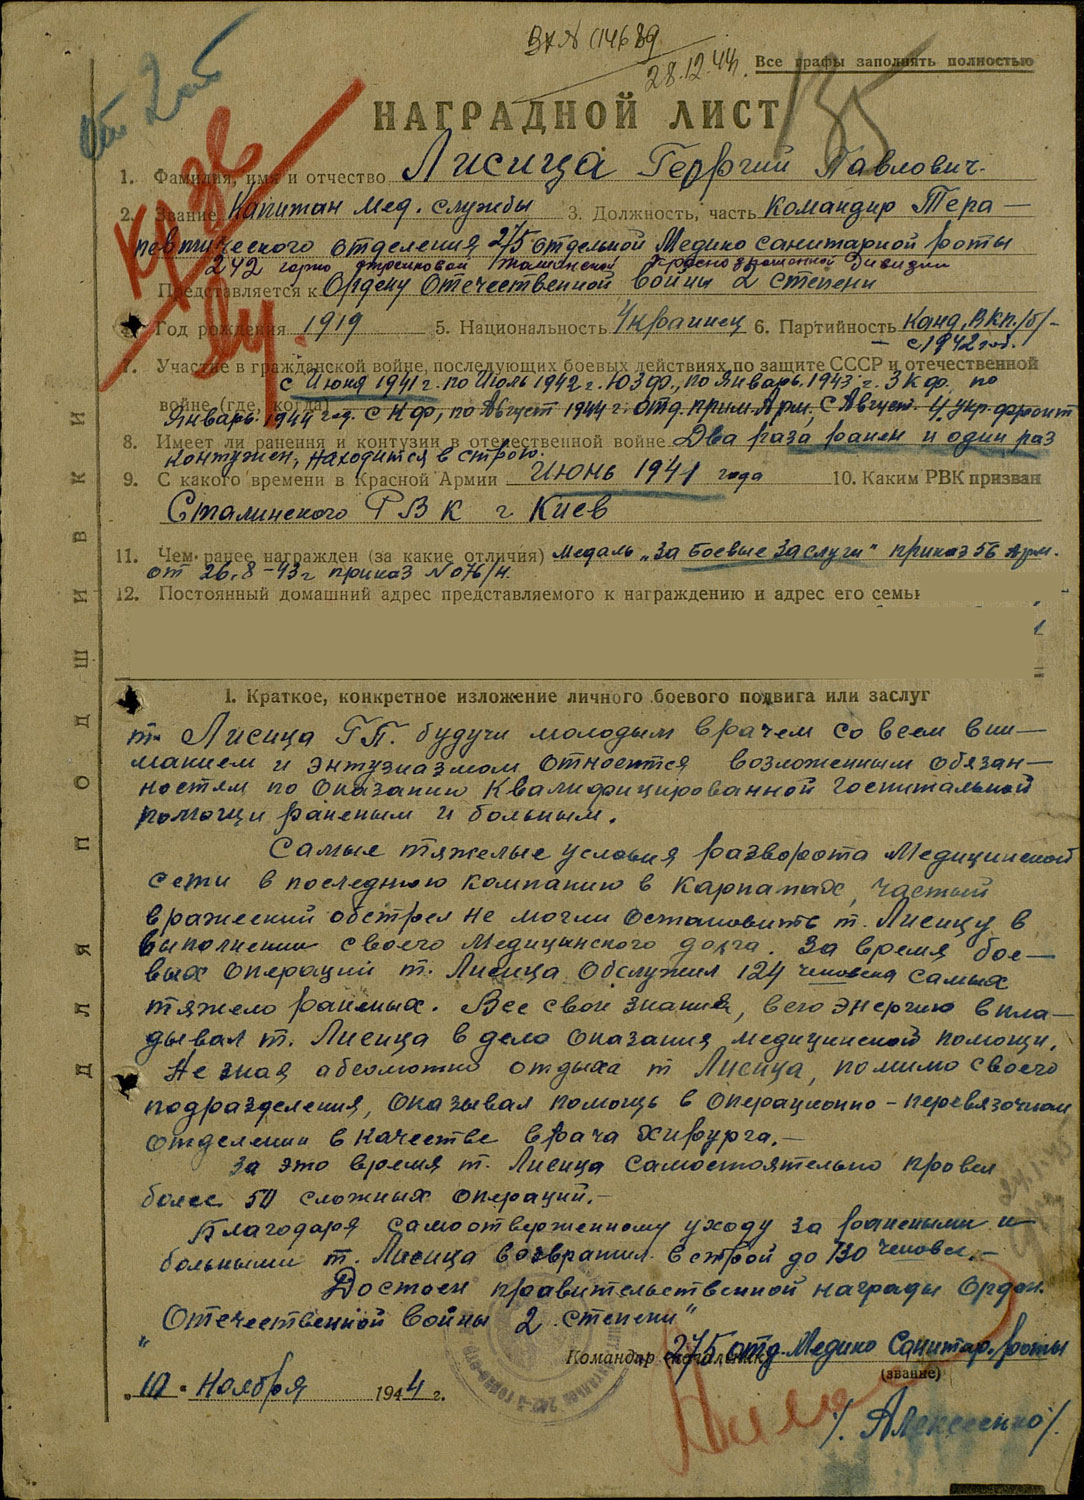 28.12.44г.
Все графы заполнять полностью
135
НАГРАДНОЙ ЛИСТ
1. Фамилия, имя и отчество Лисица Георгий Павлович.
2. Звание Капитан мед. службы 3. Должность, часть Командир Тера-
певтического отделения 275 отдельной Медико санитарной роты
242 горно стрелковой Таманской Краснознаменной дивизии
Представляется к Ордену Отечественной войны 2 степени
Год рождения 1919 5. Национальность Украинец 6. Партийность Канд. ВКП/б/-
с 1942 год.
7. Участие в гражданской войне, последующих боевых действиях по защите СССР и отечественной
с Июня 1941 г. по Июль 1942 г. ЮЗФ., по Январь 1943 г. ЗКФ, по
войне (где, когда)
Январь 1944 год. СКФ, по Август 1944 г. отд. прим. Арм, с Август. 4 укр. фронт
8. Имеет ли ранения и контузии в отечественной войне Два раза ранен и один раз
контужен, находится в строю.
9. С какого времени в Красной Армии Июнь 1941 года 10. Каким РВК призван
Сталинского РВК г Киев
11. Чем ранее награжден (за какие отличия) медаль „За боевые заслуги" приказ 56 Арм.
от 26.8-43г приказ №076/н.
12. Постоянный домашний адрес представляемого к награждению и адрес его семьи
ДЛЯ ПОДШИВКИ
1. Краткое, конкретное изложение личного боевого подвига или заслуг
т. Лисица Г.П. будучи молодым врачем со всем вни-
манием и энтузиазмом относится возложенным обязан-
ностям по оказании квалифицированной госпитальной
помощи раненым и больным.
Самые тяжелые условия разворота Медицинской
сети в последнюю компанию в Карпатах, частый
вражеский обстрел не могли остановить т. Лисицу в
выполнении своего медицинского долга. За время бое-
вых операций т. Лисица обслужил 124 человека самых
тяжело раненых. Все свои знания, всю энергию вкла-
дывал т. Лисица в дело оказания медицинской помощи.
Не зная абсолютно отдыха т Лисица, помимо своего
подразделения, оказывал помощь в операционно-перевязочном
отделении в качестве врача хирурга.-
За это время т. Лисица самостоятельно провел
более 50 сложных операций.-
Благодаря самоотверженному уходу за ранеными и
больными т. Лисица возвратил в строй до 730 человек.-
Достоен правительственной награды Орден.
„Отечественной войны 2 степени"
Командир (начальник) 275 отд. Медико Санитар. роты
(звание)
„10" Ноября 1944 г.
/Алексеенко/.